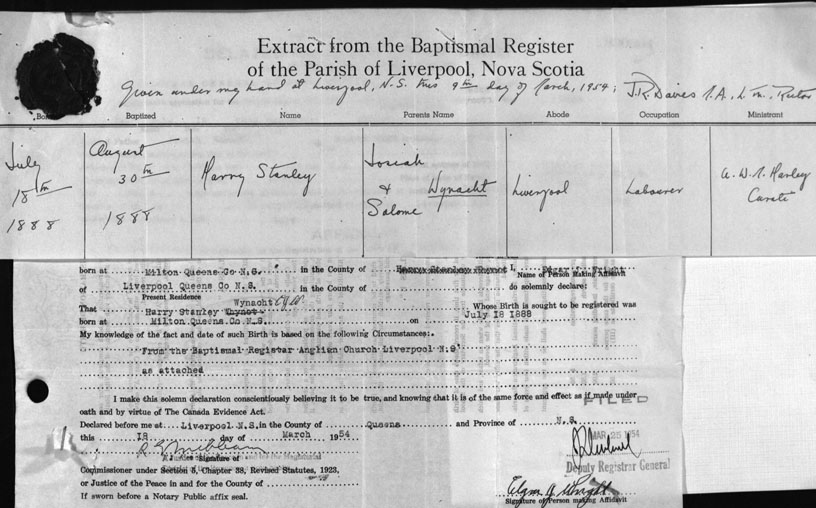 Extract from the Baptismal Register
of the Parish of Liverpool, Nova Scotia
Given under my hand at Liverpool, N.S. this 9th day of March, 1954: J.R. Davies Rector
Born Baptized Name Parents Name Abode Occupation Ministrant
July 18th 1888
August 30th 1888
Harry Stanley
Josiah & Salome Wynacht
Liverpool
Labourer
A. W. Harley Curate
born at Milton Queens Co N.S. in the County of I, Edgar J. Wright
Name of Person Making Affidavit
of Liverpool Queens Co N.S. in the County of do solemnly declare:
Present Residence
Wynacht EJW
That Harry Stanley Thynot Whose Birth is sought to be registered was
born at Milton Queens Co N.S. on July I8 I888
My knowledge of the fact and date of such Birth is based on the following Circumstances:
From the Baptismal Register Anglian Church Liverpool N.S
as attached
I make this solemn declaration conscientiously believing it to be true, and knowing that it is of the same force and effect as if made under
oath and by virtue of The Canada Evidence Act.
FILED
Declared before me at Liverpool N.S. in the County of Queens and Province of N.S.
this I8 day of March 1954
MAR 25 1954
Signature of
Deputy Registrar General
Commissioner under Section 5, Chapter 38, Revised Statutes, 1923,
or Justice of the Peace in and for the County of
Edgar J Wright
If sworn before a Notary Public affix seal.
Signature of Person making Affidavit